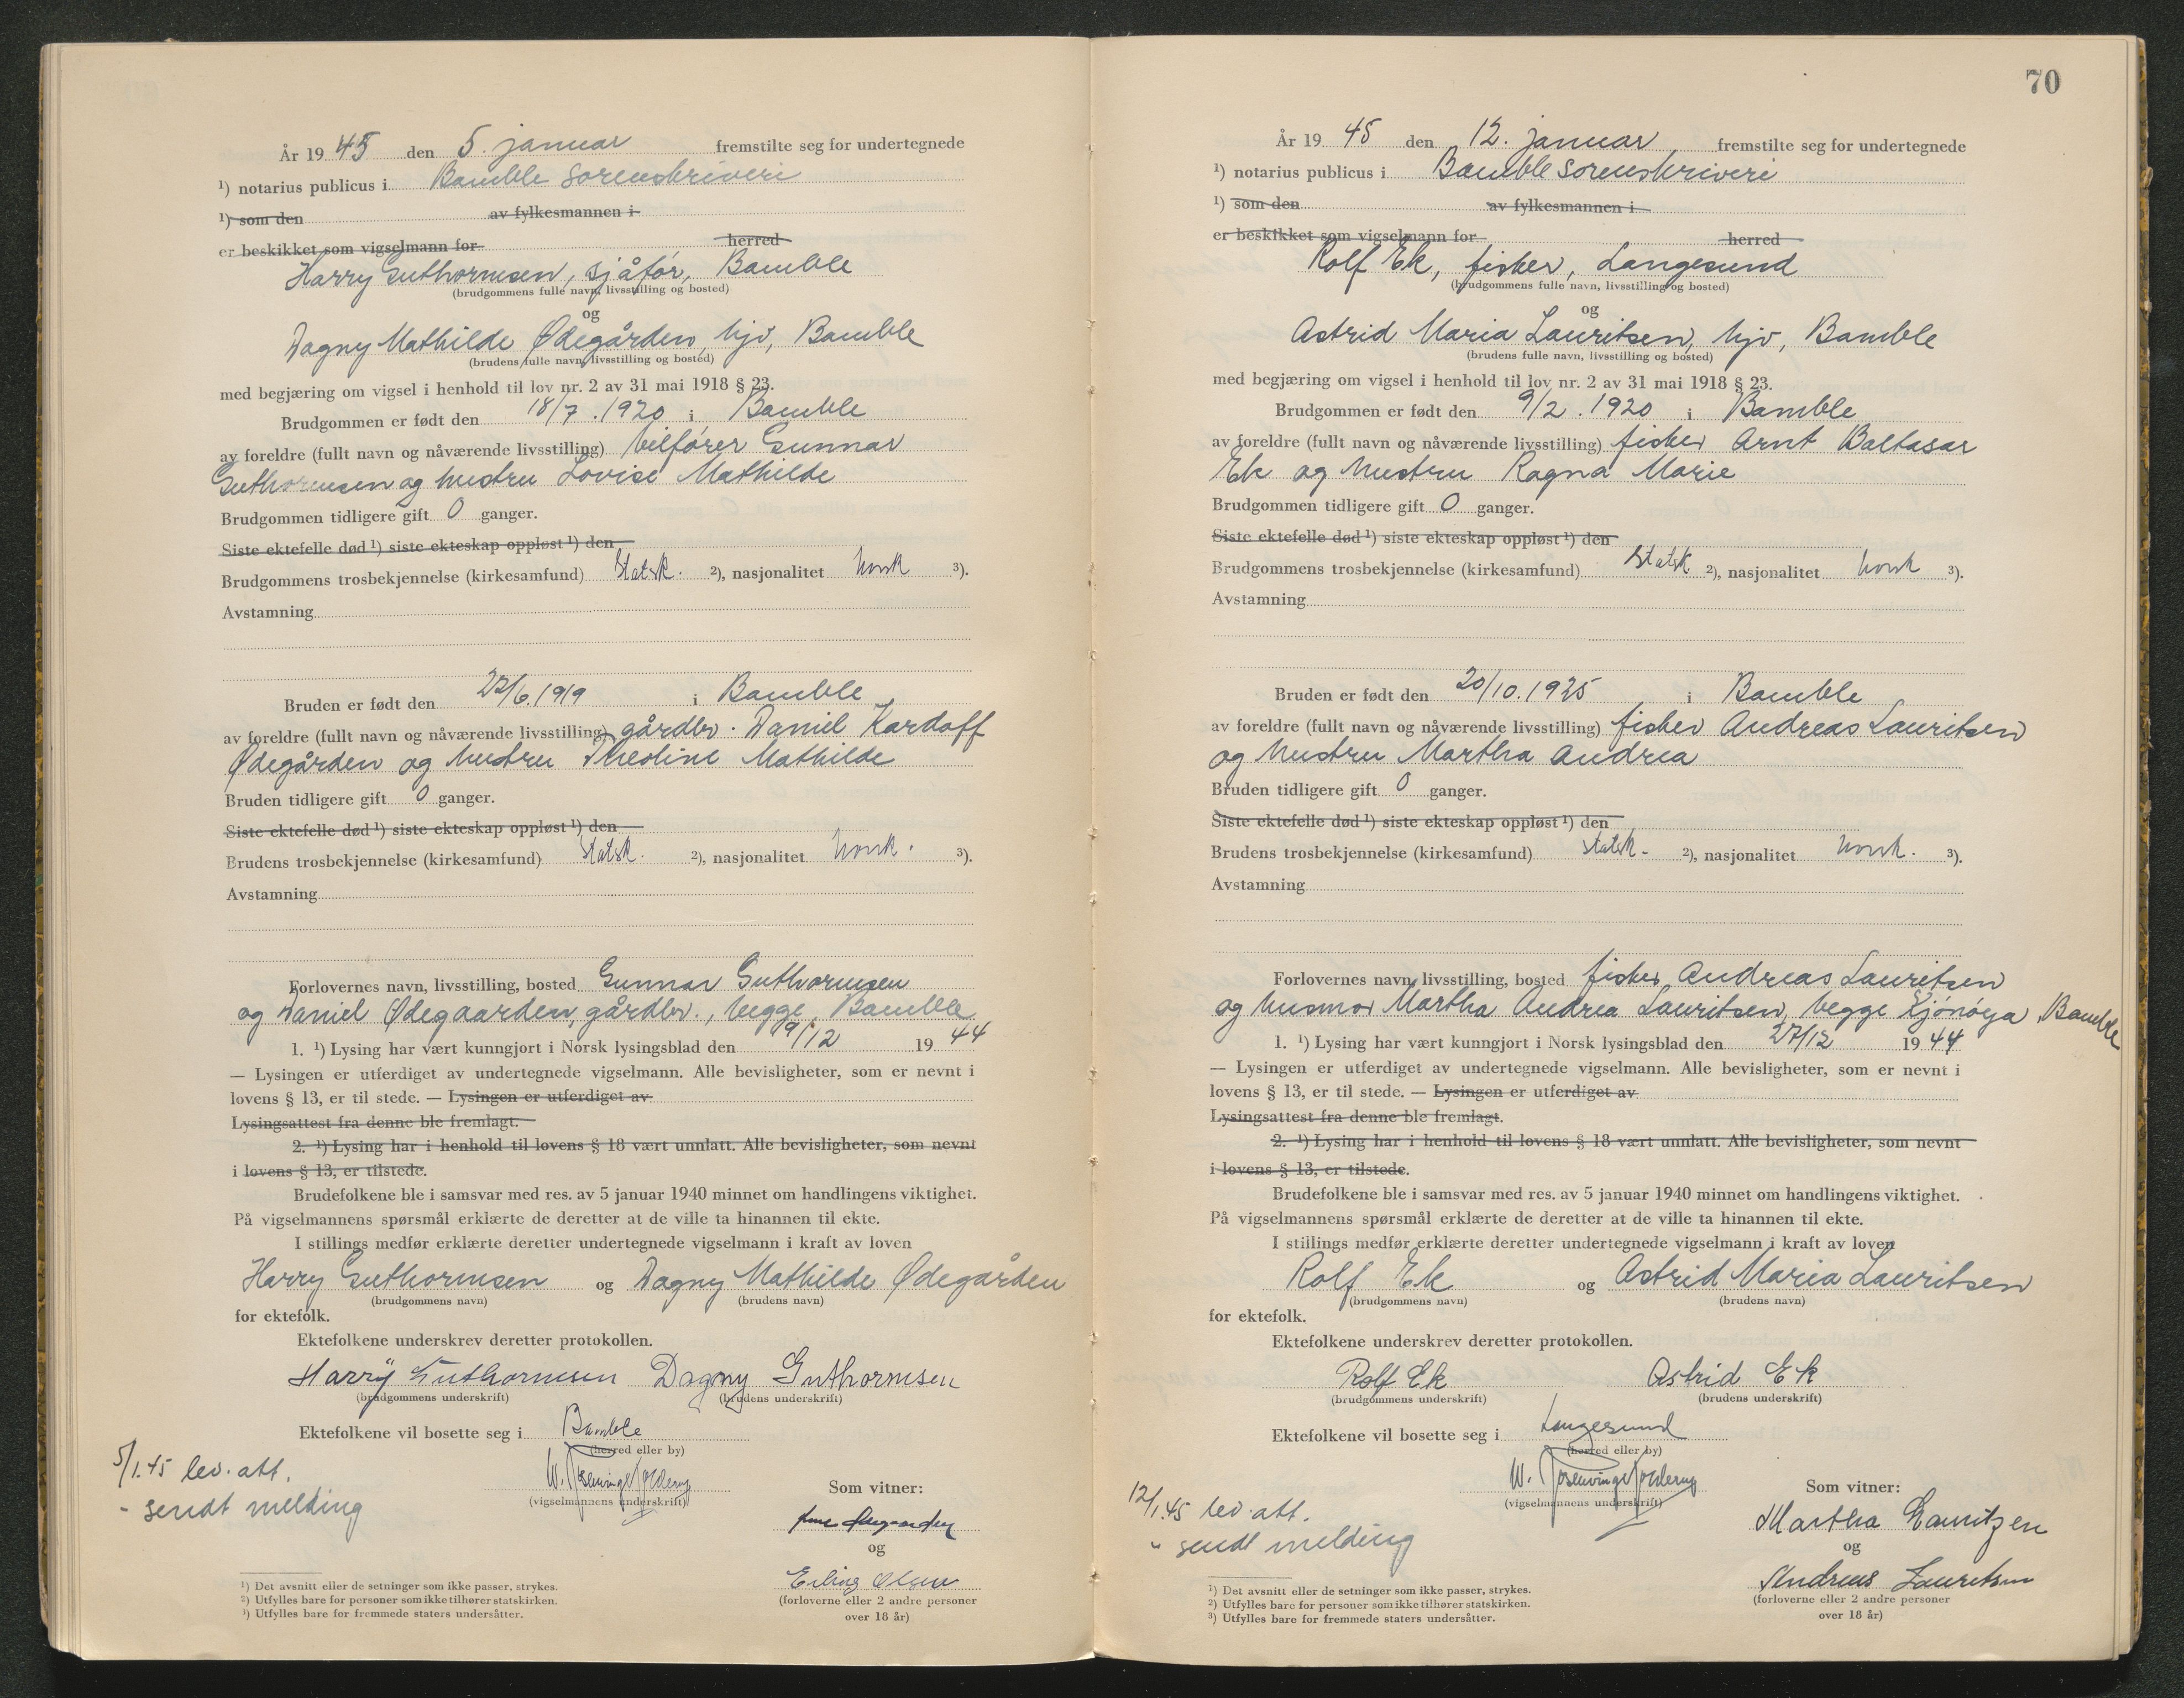 År 19 45 den 5. januar fremstilte seg for undertegnede
¹) notarius publicus i Bamble sorenskriveri
¹) som den av fylkesmannen i
er beskikket som vigselmann for herred
Harry Guthormsen, sjåfør, Bamble
(brudgommens fulle navn, livsstilling og bosted)
og
Dagny Mathilde Ødegården, hjv, Bamble
(brudens fulle navn, livsstilling og bosted)
med begjæring om vigsel i henhold til lov nr. 2 av 31 mai 1918 § 23.
Brudgommen er født den 18/7.1920 i Bamble
av foreldre (fullt navn og nåværende livsstilling) bilfører Gunnar
Guthormsen og hustru Lovise Mathilde
Brudgommen tidligere gift 0 ganger.
Siste ektefelle død ¹) siste ekteskap oppløst ¹) den
Brudgommens trosbekjennelse (kirkesamfund) Statsk. ²), nasjonalitet norsk ³).
Avstamning
Bruden er født den 22/6.1919 i Bamble
av foreldre (fullt navn og nåværende livsstilling) gårdbr. Daniel Kardoff
Ødegården og hustru Thestine Mathilde
Bruden tidligere gift 0 ganger.
Siste ektefelle død ¹) siste ekteskap oppløst ¹) den
Brudens trosbekjennelse (kirkesamfund) Statsk. ²), nasjonalitet norsk. ³).
Avstamning
Forlovernes navn, livsstilling, bosted Gunnar Guthormsen
og Daniel Ødegaarden, gårdbr., begge Bamble
1. ¹) Lysing har vært kunngjort i Norsk lysingsblad den 9/12 19 44
— Lysingen er utferdiget av undertegnede vigselmann. Alle bevisligheter, som er nevnt i
lovens § 13, er til stede. — Lysingen er utferdiget av
Lysingsattest fra denne ble fremlagt.
2. ¹) Lysing har i henhold til lovens § 18 vært unnlatt. Alle bevisligheter, som nevnt
i lovens § 13, er tilstede.
Brudefolkene ble i samsvar med res. av 5 januar 1940 minnet om handlingens viktighet.
På vigselmannens spørsmål erklærte de deretter at de ville ta hinannen til ekte.
I stillings medfør erklærte deretter undertegnede vigselmann i kraft av loven
Harry Guthormsen og Dagny Mathilde Ødegården
(brudgommens navn) (brudens navn)
for ektefolk.
Ektefolkene underskrev deretter protokollen.
Harry Guthormsen Dagny Guthormsen
(brudgommens underskrift) (brudens underskrift)
Ektefolkene vil bosette seg i Bamble
(herred eller by)
5/1.45 lev. att.
- sendt melding
W.
(vigselmannens underskrift)
Som vitner:
og
Erling Olsen
(forloverne eller 2 andre personer
over 18 år)
¹) Det avsnitt eller de setninger som ikke passer, strykes.
²) Utfylles bare for personer som ikke tilhører statskirken.
³) Utfylles bare for fremmede staters undersåtter.
70
År 19 45 den 12. januar fremstilte seg for undertegnede
¹) notarius publicus i Bamble sorenskriveri
¹) som den av fylkesmannen i
er beskikket som vigselmann for herred
Rolf Ek, fisker, Langesund
(brudgommens fulle navn, livsstilling og bosted)
og
Astrid Maria Lauritsen, hjv, Bamble
(brudens fulle navn, livsstilling og bosted)
med begjæring om vigsel i henhold til lov nr. 2 av 31 mai 1918 § 23.
Brudgommen er født den 9/2.1920 i Bamble
av foreldre (fullt navn og nåværende livsstilling) fisker Arnt Baltasar
Ek og hustru Ragna Marie
Brudgommen tidligere gift 0 ganger.
Siste ektefelle død ¹) siste ekteskap oppløst ¹) den
Brudgommens trosbekjennelse (kirkesamfund) Statsk ²), nasjonalitet norsk ³).
Avstamning
Bruden er født den 20/10.1925 i Bamble
av foreldre (fullt navn og nåværende livsstilling) fisker Andreas Lauritsen
og hustru Martha Andrea
Bruden tidligere gift 0 ganger.
Siste ektefelle død ¹) siste ekteskap oppløst ¹) den
Brudens trosbekjennelse (kirkesamfund) Statsk. ²), nasjonalitet norsk. ³).
Avstamning
Forlovernes navn, livsstilling, bosted fisker Andreas Lauritsen
og husmor Martha Andrea Lauritsen, begge Kjønøya, Bamble
1. ¹) Lysing har vært kunngjort i Norsk lysingsblad den 27/12 19 44
— Lysingen er utferdiget av undertegnede vigselmann. Alle bevisligheter, som er nevnt i
lovens § 13, er til stede. — Lysingen er utferdiget av
Lysingsattest fra denne ble fremlagt.
2. ¹) Lysing har i henhold til lovens § 18 vært unnlatt. Alle bevisligheter, som nevnt
i lovens § 13, er tilstede.
Brudefolkene ble i samsvar med res. av 5 januar 1940 minnet om handlingens viktighet.
På vigselmannens spørsmål erklærte de deretter at de ville ta hinannen til ekte.
I stillings medfør erklærte deretter undertegnede vigselmann i kraft av loven
Rolf Ek og Astrid Maria Lauritsen
(brudgommens navn) (brudens navn)
for ektefolk.
Ektefolkene underskrev deretter protokollen.
Rolf Ek Astrid Ek
(brudgommens underskrift) (brudens underskrift)
Ektefolkene vil bosette seg i Langesund
(herred eller by)
12/1.45 lev. att.
" sendt melding
W.
(vigselmannens underskrift)
Som vitner:
Martha Lauritzen
og
Andreas Lauritsen
(forloverne eller 2 andre personer
over 18 år)
¹) Det avsnitt eller de setninger som ikke passer, strykes.
²) Utfylles bare for personer som ikke tilhører statskirken.
³) Utfylles bare for fremmede staters undersåtter.